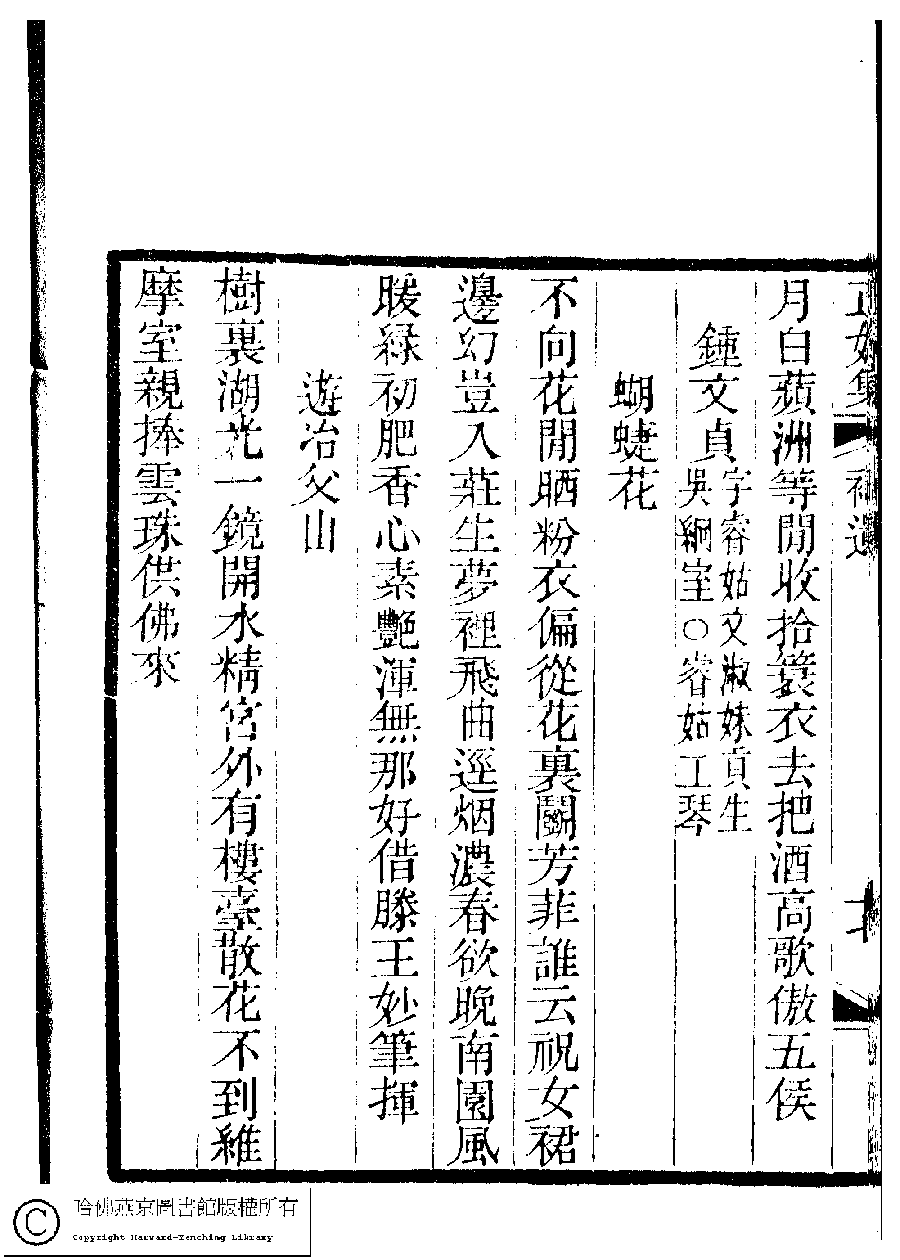 正始集 補遺
月白蘋洲等閒收拾簑衣去把酒高歌傲五侯
鍾文貞
字睿姑文淑妹貢生
吳絅室○睿姑工琴
蝴蜨花
不向花閒晒粉衣偏從花裏鬭芳菲誰云祝女裙
邊幻豈入莊生夢裡飛曲逕烟濃春欲晚南園風
暖綠初肥香心素艷渾無那好借滕王妙筆揮
遊冶父山
樹裏湖光一鏡開水精宮外有樓臺散花不到維
摩室親捧雲珠供佛來
哈佛燕京圖書館版權所有
Copyright Harvard-Yenching Library